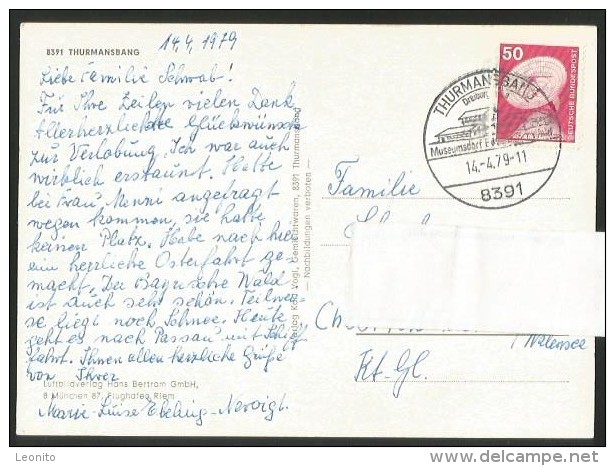 8391 THURMANSBANG
14.4.1979
Liebe Familie Schwab!
Für Ihre Zeilen vielen Dank
Allerherzlichste Glückwünsche
zur Verlobung. Ich war auch
wirklich erstaunt. Hatte
bei Frau Menni angefragt
wegen kommen, sie hatte
keinen Platz. Habe nach hier
ein herrliche Osterfahrt ge-
macht. Der Bayrische Wald
ist auch sehr schön. Teilwei-
se liegt noch Schnee. Heute
geht es nach Passau mit Schiff
fahrt. Ihnen allen herzliche Grüße
von Ihrer
Luftbildverlag Hans Bertram GmbH,
8 München 87, Flughafen Riem
Marie-Luise Ebeling-Nevoigt.
Verlag Vogl, Gemischtwaren, 8391 Thurmansbang
— Nachbildungen verboten —
THURMANSBANG
Dreiburg
Museumsdorf
14.-4.79-11
8391
50
DEUTSCHE BUNDESPOST
Familie
Kt. Gl.